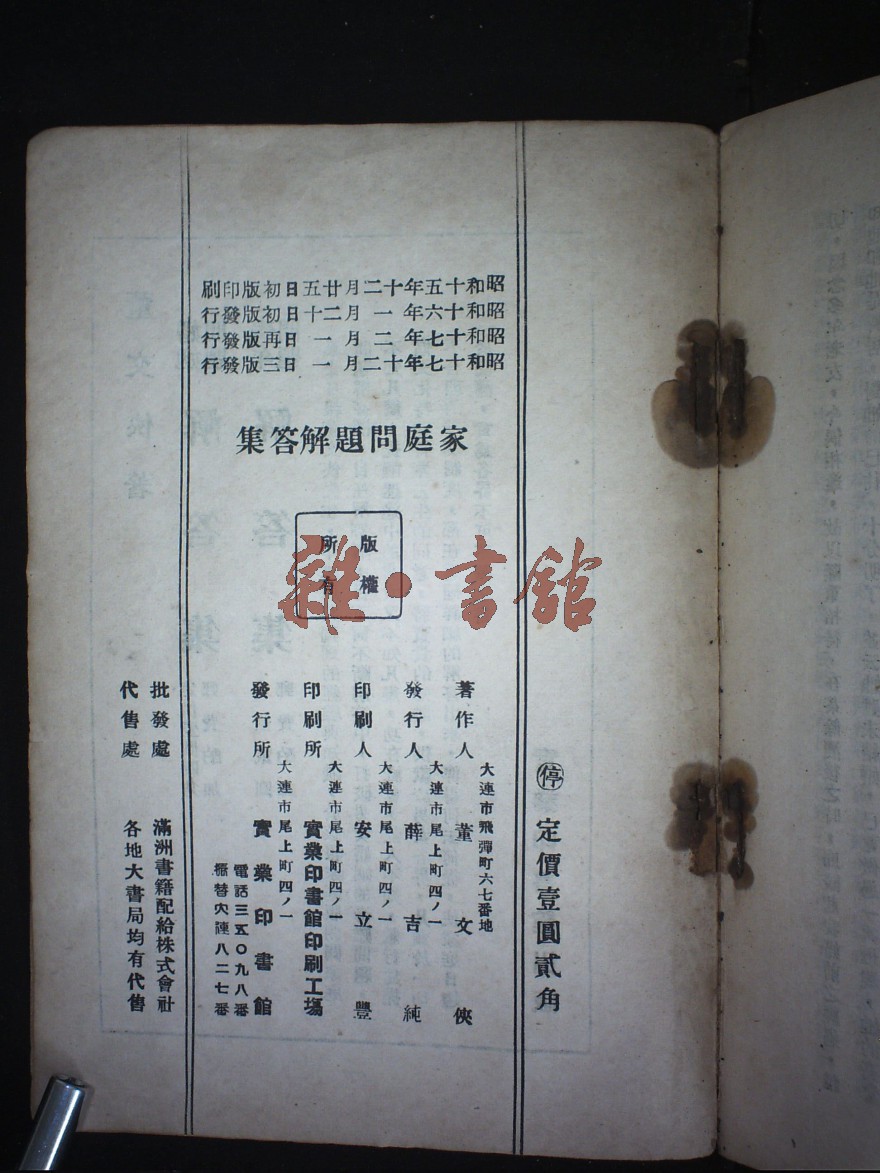 昭和十五年十二月廿五日初版印刷
昭和十六年一月二十日初版發行
昭和十七年二月一日再版發行
昭和十七年十二月一日三版發行
家庭問題解答集
版權
所有
雜·書舘
㊡定價壹圓貳角
大連市飛彈町六七番地
著作人 董文俠
大連市尾上町四ノ一
發行人 薛吉純
大連市尾上町四ノ一
印刷人 安立豐
大連市尾上町四ノ一
印刷所 實業印書館印刷工場
大連市尾上町四ノ一
發行所 實業印書館
電話三五〇九八番
振替大連八二七番
批發處 滿洲書籍配給株式會社
代售處 各地大書局均有代售